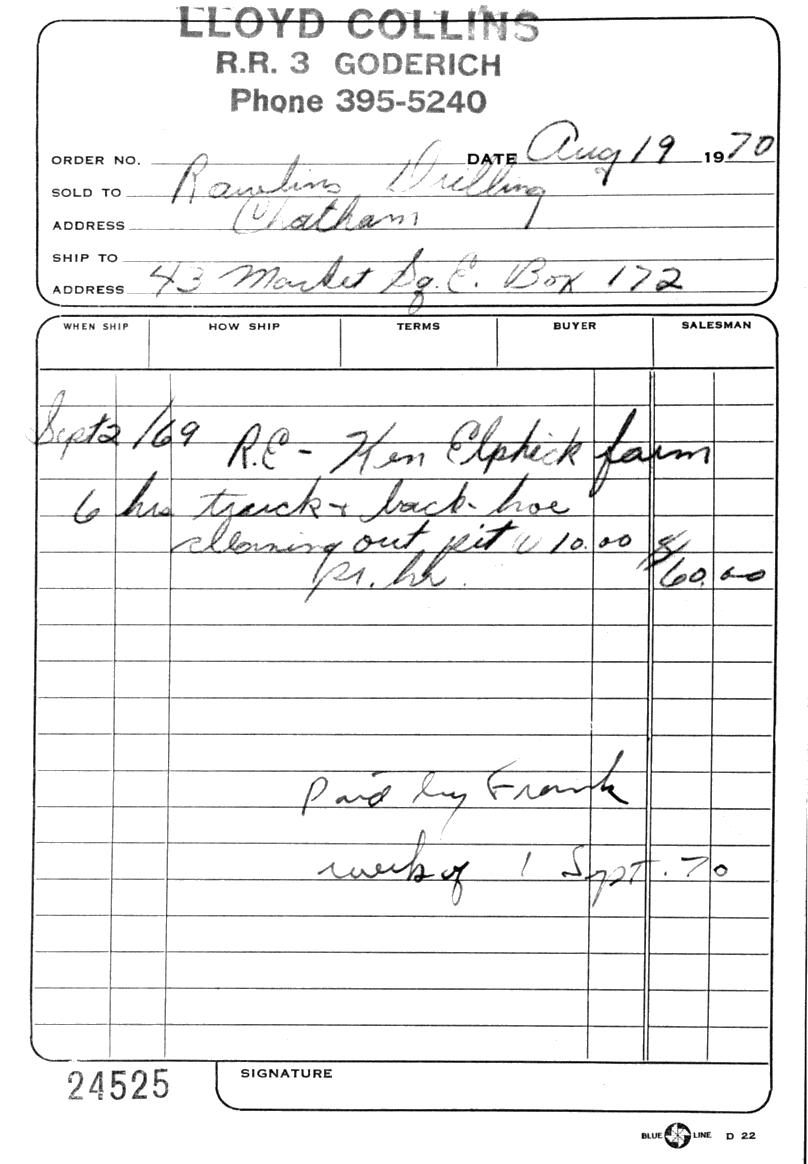 LLOYD COLLINS
R.R. 3 GODERICH
Phone 395-5240
ORDER NO. DATE Aug 19 1970
SOLD TO Rawlins Drilling
ADDRESS Chatham
SHIP TO
ADDRESS 43 Market Sq. E. Box 172
WHEN SHIP HOW SHIP TERMS BUYER SALESMAN
Sept 2/69 R.E - Ken Elphick farm
6 hrs truck + back-hoe
cleaning out pit 10.00
pr. hr. $60.00
Paid by Frank
week of 1 Sept. 70
24525
SIGNATURE
BLUE LINE D 22